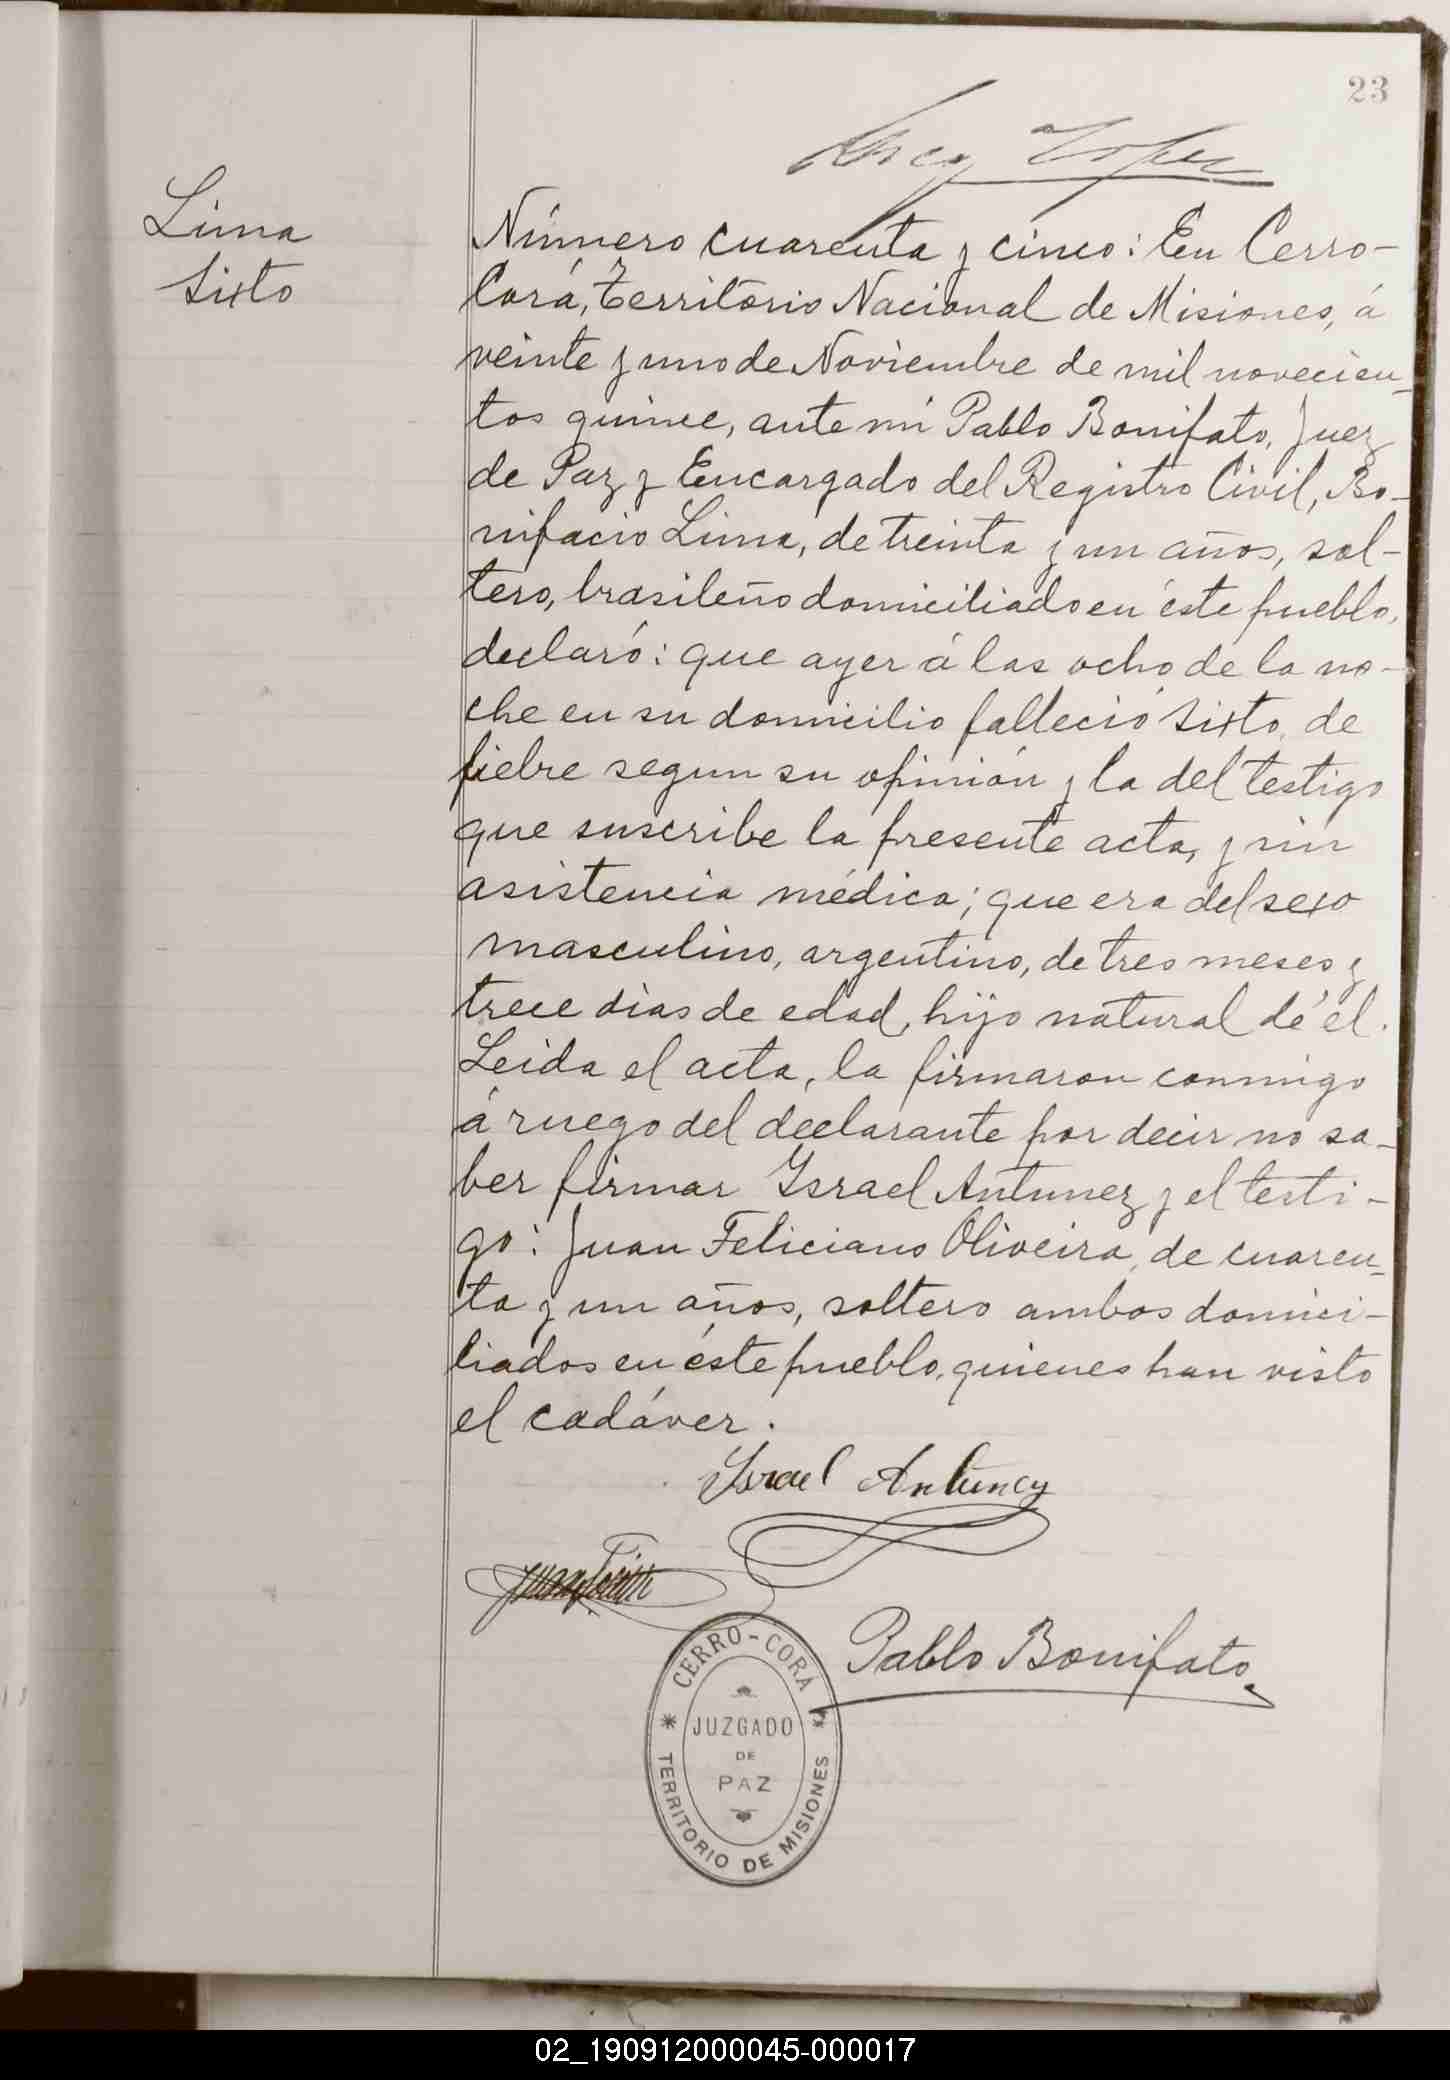 23
Lopez
Lima
Sixto
Número cuarenta y cinco: En Cerro-
Corá, Territorio Nacional de Misiones, á
veinte y uno de Noviembre de mil novecien-
tos quince, ante mi Pablo Bonifato, Juez
de Paz y Encargado del Registro Civil, Bo-
nifacio Lima, de treinta y un años, sol-
tero, brasileño domiciliado en éste pueblo,
declaró: que ayer á las ocho de la no-
che en su domicilio falleció Sixto, de
fiebre segun su opinión y la del testigo
que suscribe la presente acta, y sin
asistencia médica; que era del sexo
masculino, argentino, de tres meses y
trece dias de edad, hijo natural de él.
Leida el acta, la firmaron conmigo
á ruego del declarante por decir no sa-
ber firmar Israel Antunez y el testi-
go: Juan Feliciano Oliveira, de cuaren-
ta y un años, soltero ambos domici-
liados en éste pueblo, quienes han visto
el cadáver.
Israel Antunez
Pablo Bonifato
CERRO-CORÁ
JUZGADO
DE
PAZ
TERRITORIO DE MISIONES
02_190912000045-000017